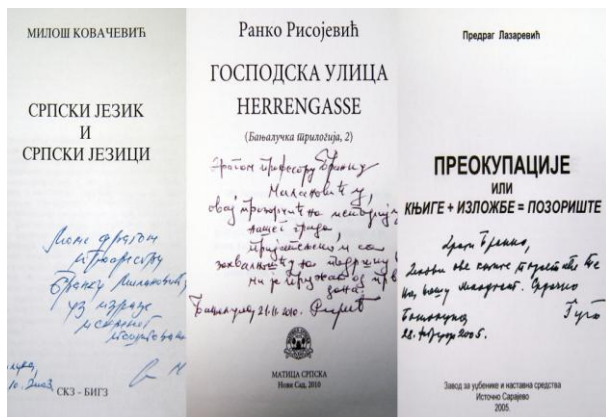 МИЛОШ КОВАЧЕВИЋ
СРПСКИ ЈЕЗИК
И
СРПСКИ ЈЕЗИЦИ
Моме драгом
професору
Бранку Милановићу,
уз изразе
искреног
поштовања
СКЗ - БИГЗ
Ранко Рисојевић
ГОСПОДСКА УЛИЦА
HERRENGASSE
(Бањалучка трилогија, 2)
Драгом професору Бранку
Милановићу,
овај
нашег града,
пријатељски и са
захвалношћу на подршци
ми је пружао од првог
дана
Бањалука, 21.11.2010.
МАТИЦА СРПСКА
Нови Сад, 2010
Предраг Лазаревић
ПРЕОКУПАЦИЈЕ
ИЛИ
КЊИГЕ + ИЗЛОЖБЕ = ПОЗОРИШТЕ
Драги Бранко,
ове књиге
на нашу младост. Срдачно
Бањалука
2005.
Завод за уџбенике и наставна средства
Источно Сарајево
2005.